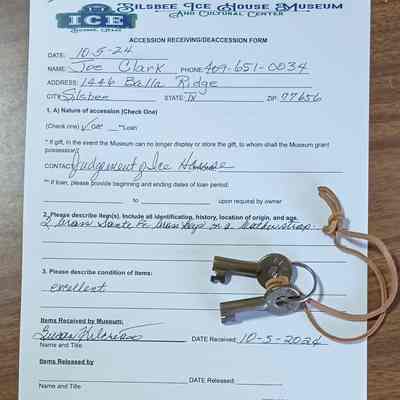 Silsbee Ice House Museum
and Cultural Center
ICE
ACCESSION RECEIVING/DEACCESSION FORM
DATE: 10-5-24
NAME: Joe Clark PHONE: 409-651-0034
ADDRESS: 1446 Balla Ridge
CITY: Silsbee STATE: TX ZIP: 77656
1. A) Nature of accession (Check One)
(Check one) ✓ Gift **Loan
* If gift, in the event the Museum can no longer display or store the gift, to whom shall the Museum grant
possession?
CONTACT: Judgement of Ice House
** If loan, please provide beginning and ending dates of loan period:
to upon request by owner
2. Please describe item(s). Include all identification, history, location of origin, and age.
2 brass Santa Fe brass keys on a leather strap.
3. Please describe condition of items:
excellent
Items Received by Museum:
Susan DATE Received: 10-5-2024
Name and Title
Items Released by
Name and Title